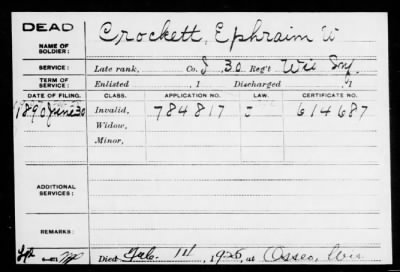 DEAD
NAME OF SOLDIER: Crockett, Ephraim W
SERVICE: Late rank, Co. I, 30 Reg't Wis Inf.
TERM OF SERVICE: Enlisted , 1 Discharged , 1
DATE OF FILING. CLASS. APPLICATION NO. LAW. CERTIFICATE NO.
1890 June 30 Invalid, 784817 614687
Widow,
Minor,
ADDITIONAL SERVICES:
REMARKS:
Died Feb. 11, 1925, at Osseo, Wis